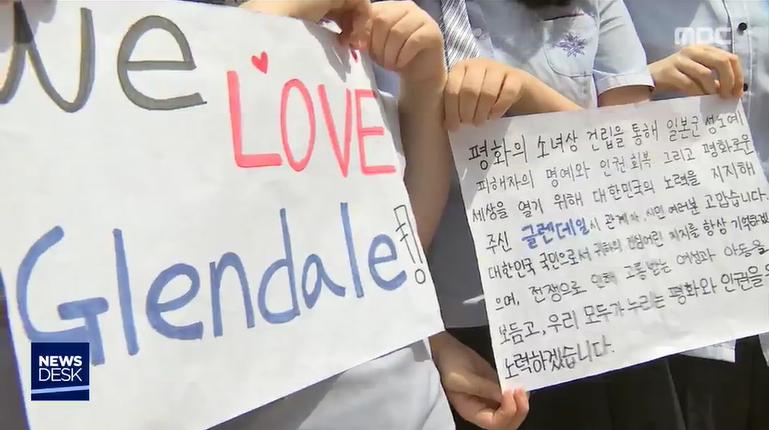 We
LOVE
Glendale!
평화의 소녀상 건립을 통해 일본군 성노예
피해자의 명예와 인권 회복 그리고 평화로운
세상을 열기 위해 대한민국의 노력을 지지해
주신 글렌데일시 관계자, 시민 여러분 고맙습니다.
대한민국 국민으로서 귀하의 지지를 항상 기억하겠
으며, 전쟁으로 인해 고통받는 여성과 아동을
보듬고, 우리 모두가 누리는 평화와 인권을 위
노력하겠습니다.
MBC
NEWS
DESK